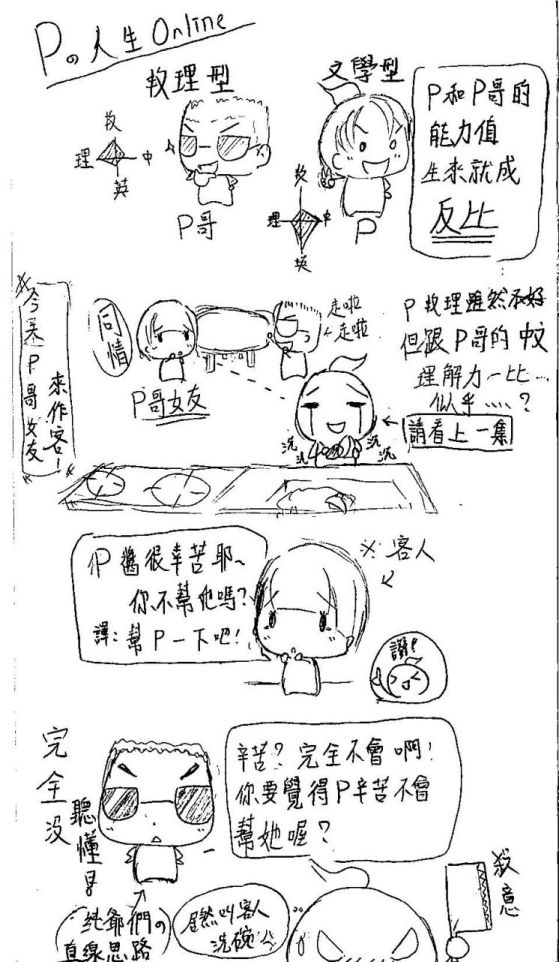 Pの人生Online
數理型
文學型
數
理
中
英
P哥
數
理
中
英
P
P和P哥的
能力值
生來就成
反比
※今天P哥女友
來作客!
同情
P哥女友
走啦
走啦
P數理雖然不好
但跟P哥的中文
理解力一比…
似乎……?
請看上一集
洗
洗
洗
洗
P醬很辛苦耶~
你不幫他嗎?
譯:幫P一下吧!
※客人
讚!
完全沒
聽懂!
辛苦?完全不會啊!
你要覺得P辛苦不會
幫她喔?
純爺們の
直線思路
居然叫客人
洗碗
殺意